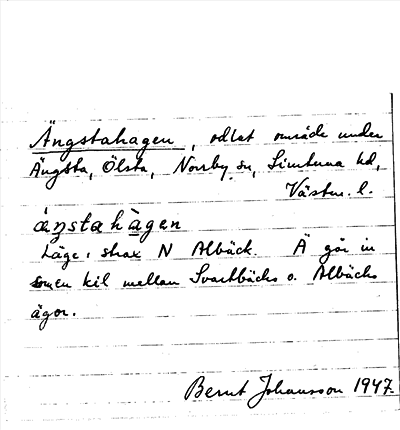 Ängstahagen, odlat område under
Ängsta, Ölsta, Norrby sn, Simtuna hd,
Västm. l.
áŋstahàgen
Läge: strax N Albäck. Ä går in
som en kil mellan Svartbäcks o. Albäcks
ägor.
Bernt Johansson 1947.